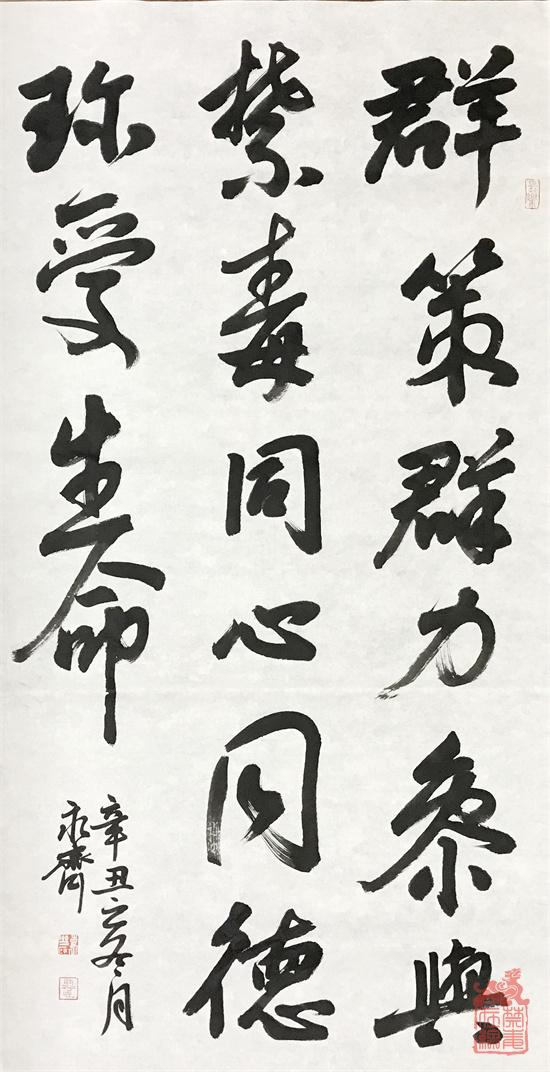 群策群力参與
禁毒同心同德
珍爱生命
辛丑之冬月
永齊